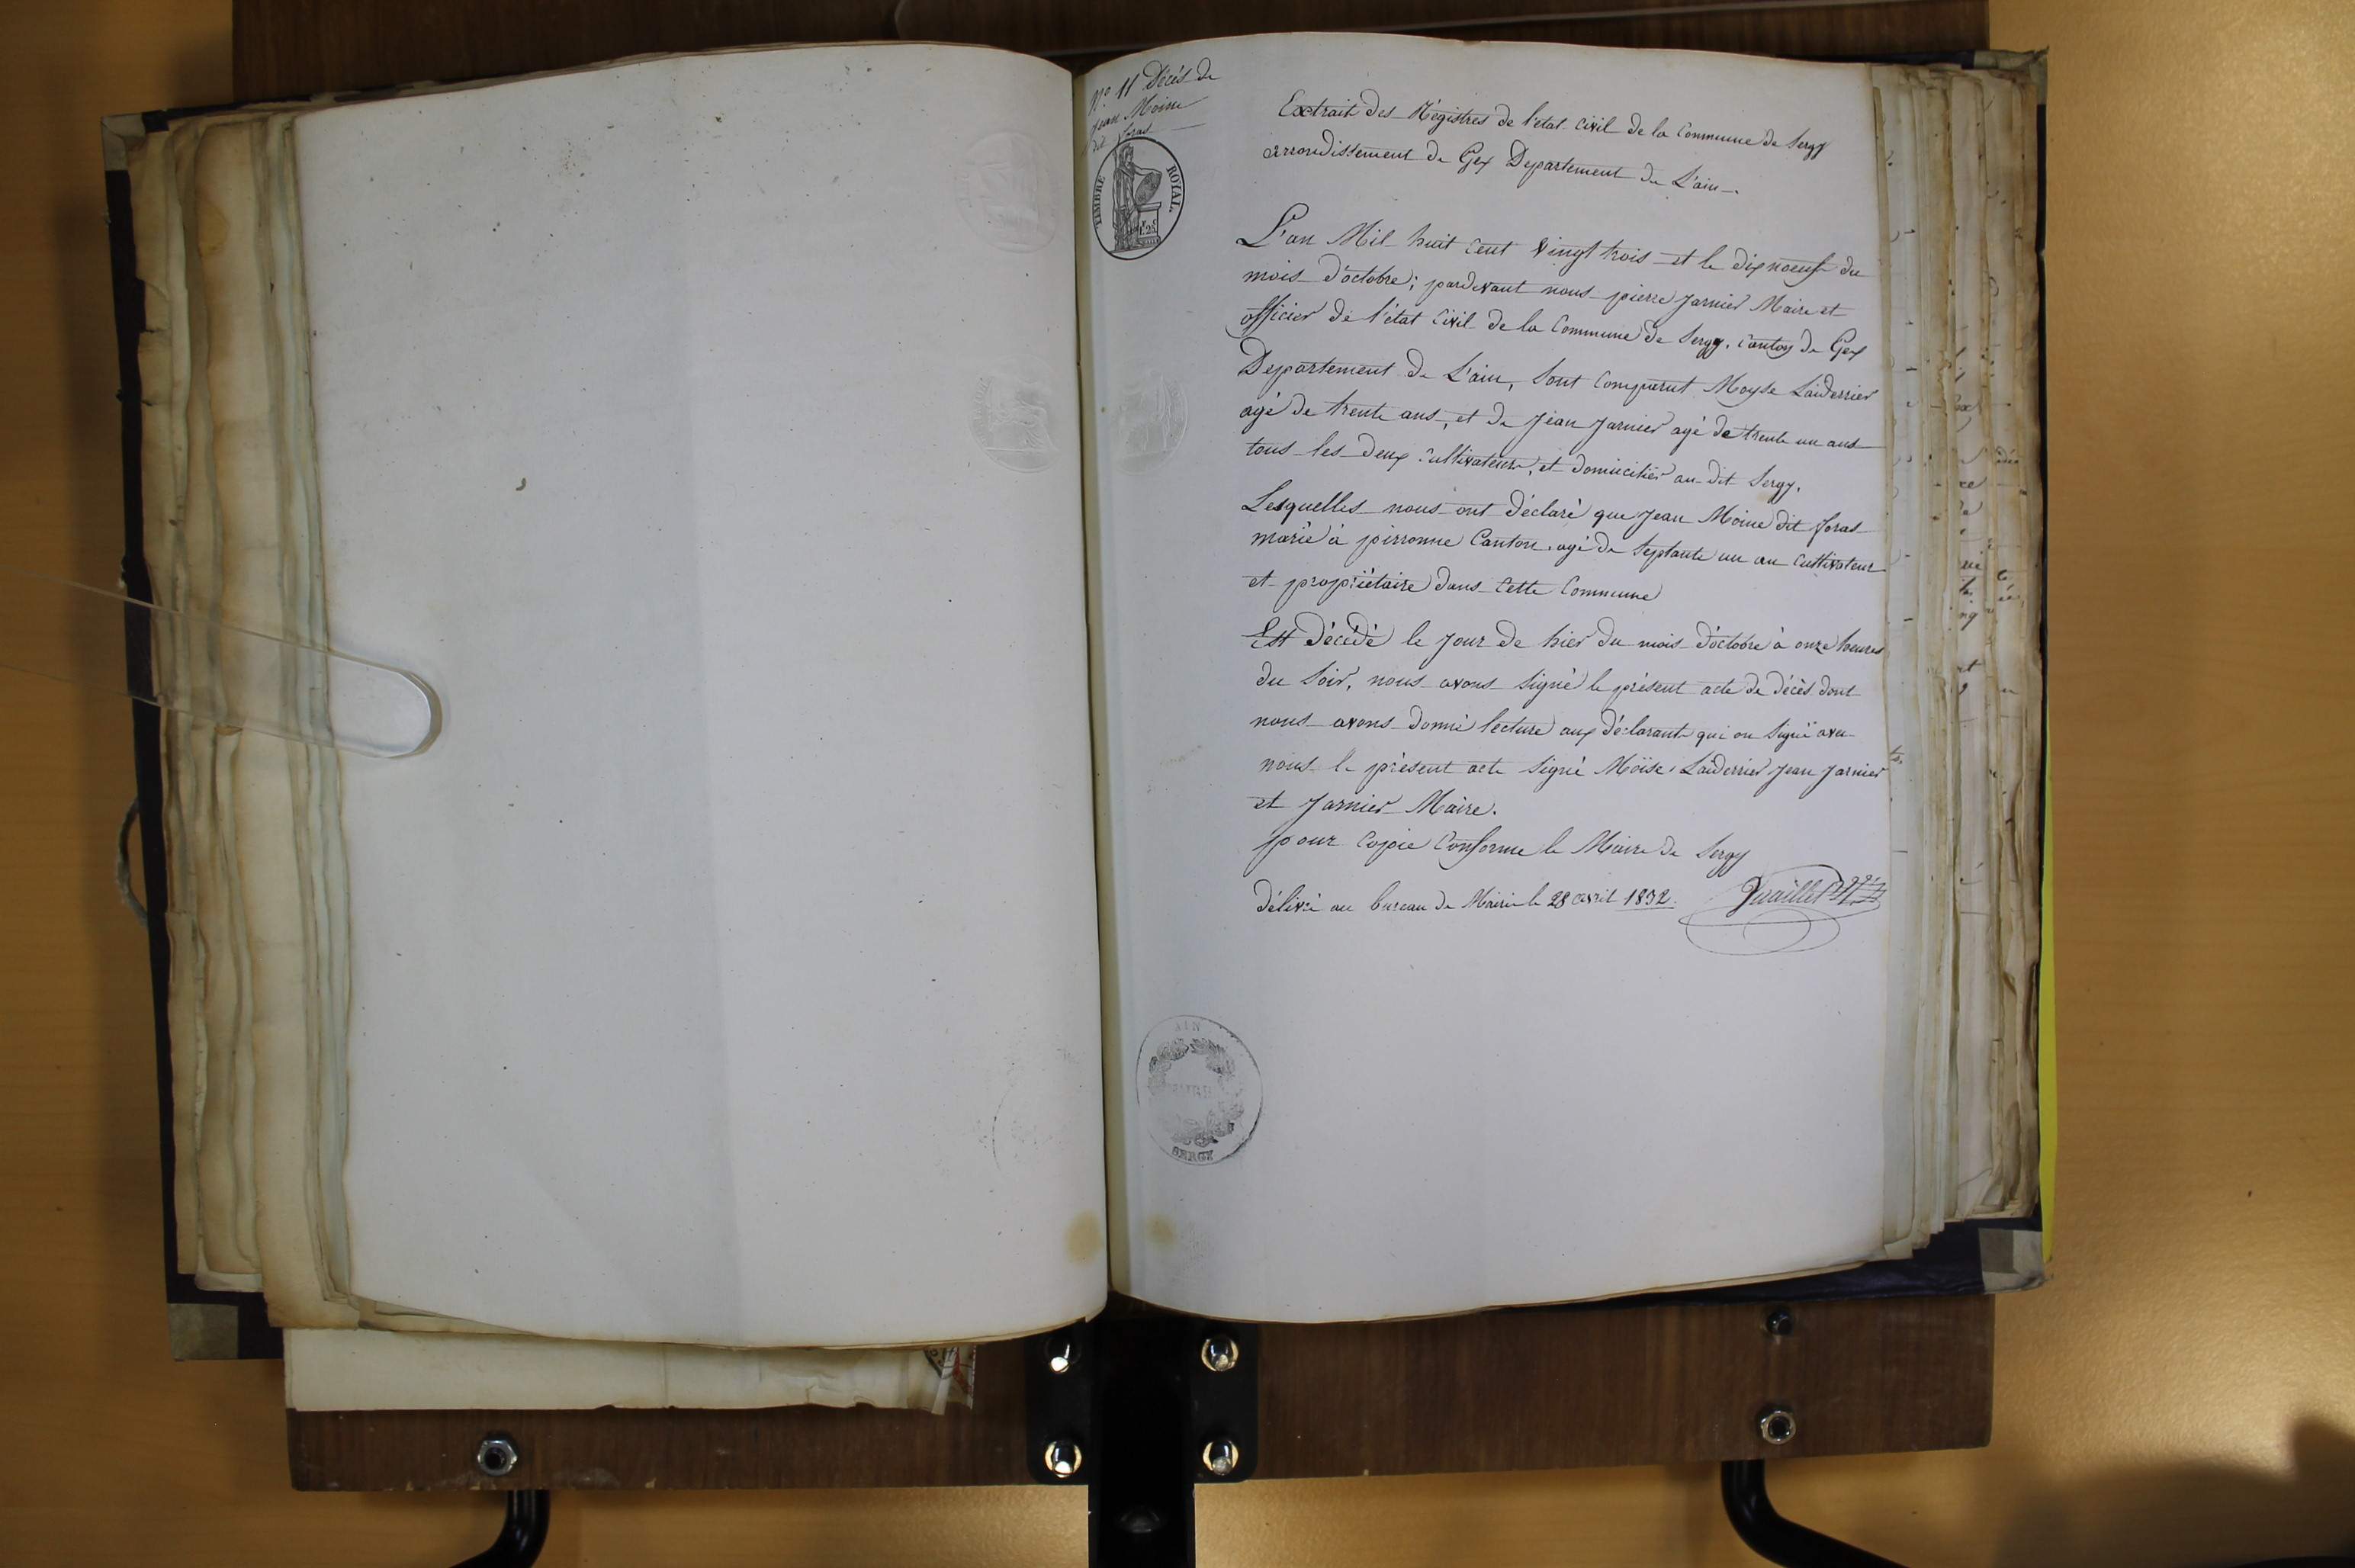 N° 11 Décès de
Jean Moine
dit foras
TIMBRE ROYAL
1F.25C
Extrait des Régistres de l'état Civil de la Commune de Sergy
arrondissement de Gex Departement de L'ain.
L'an Mil huit Cent Vingt trois et le dix noeuf du
mois d'octobre; pardevant nous pierre Jarnier Maire et
officier de l'état Civil de la Commune de Sergy. Canton de Gex
Departement de L'ain, Sont Comparut Moyse Laiderrier
agé de trente ans, et de Jean Jarnier agé de trente un ans
tous les deux Cultivateurs, et domiciliés au dit Sergy.
Lesquelles nous ont déclaré que Jean Moine dit foras
marié à pirronne Canton. agé de Septante un an Cultivateur
et propriétaire dans Cette Commune
Est décédé le jour de hier du mois d'octobre à onze heures
du Soir, nous avons Signé le présent acte de décès dont
nous avons donné lecture aux déclarants qui on Signé avec
nous le présent acte Signé Moïse Laiderrier Jean Jarnier
et Jarnier Maire.
pour Copie Conforme le Maire de Sergy
délivré au bureau de Mairie le 28 avril 1832.
AIN
SERGY